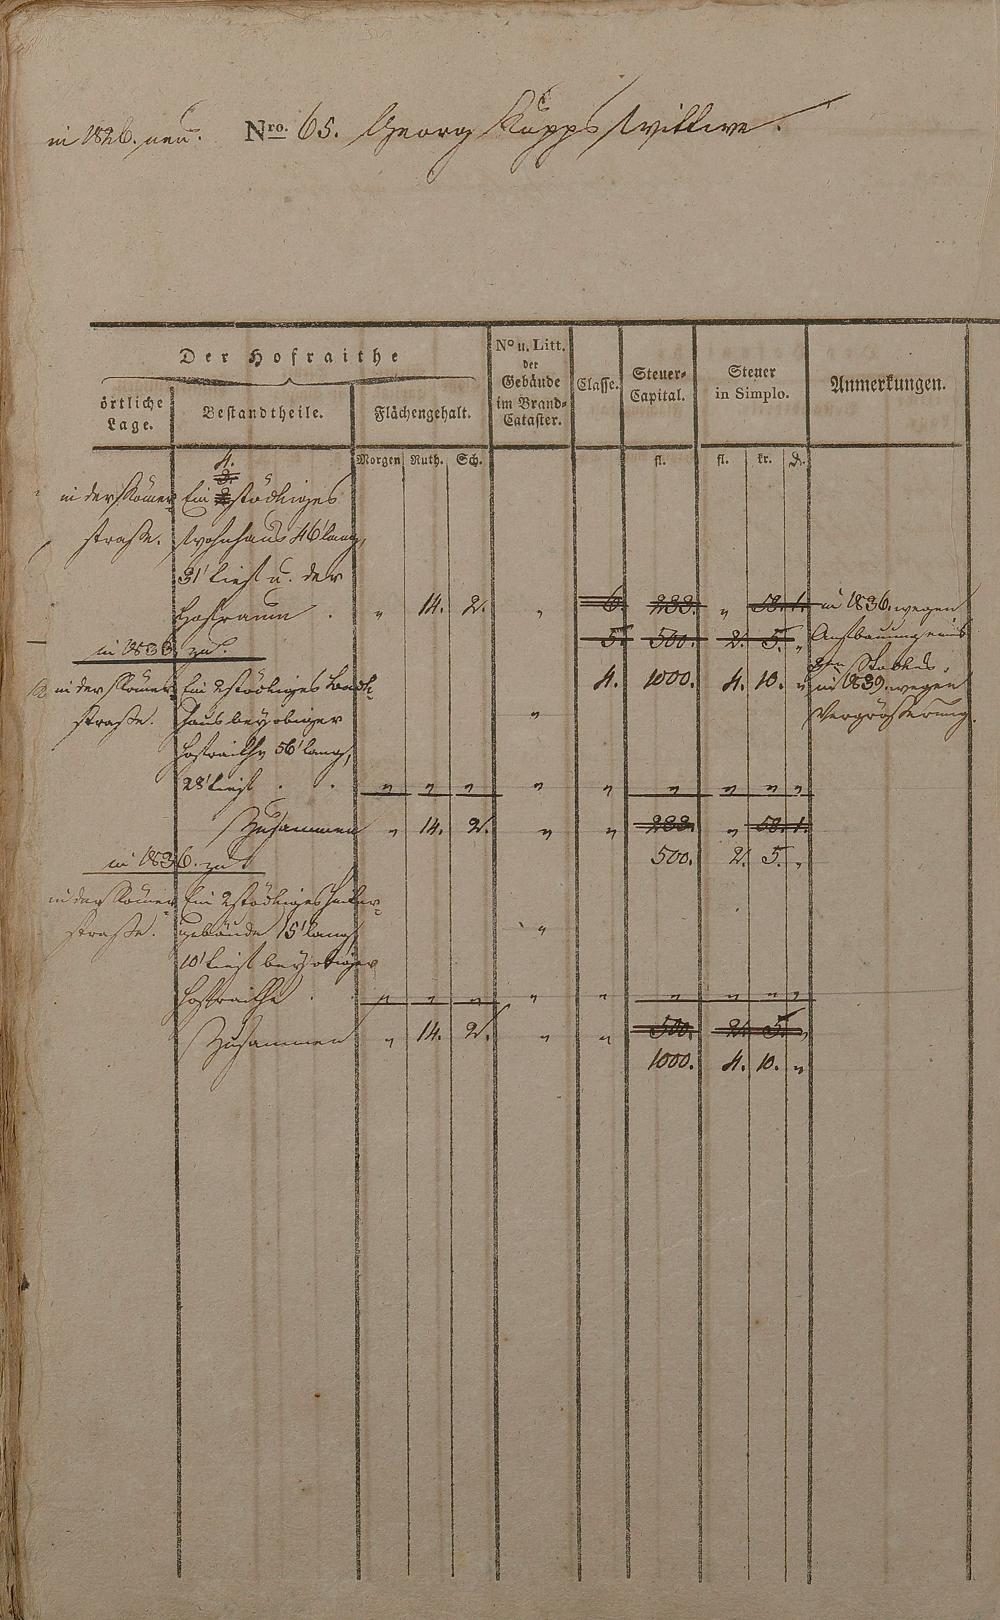 in 1826. neu. Nro. 65. Georg Kupps Wittwe.
Der Hofraithe
örtliche Lage.
Bestandtheile.
Flächengehalt.
No u. Litt. der Gebäude im Brand-Cataster.
Classe.
Steuer-Capital.
Steuer in Simplo.
Anmerkungen.
Morgen Ruth. Sch. fl. fl. kr. d.
4.
3.
in der Römer- Ein 2 stöckiges
straße. Wohnhaus 46' lang,
31' tief u. der
Hofraum . " 14. 2. " 6. 233. " 58. 1. in 1836. wegen
5. 500. 2. 5. " Aufbauung eines
in 1833. zu. 3ten Stockes.
in der Römer- Ein 2stöckiges Back- 4. 1000. 4. 10. " in 1839. wegen
straße. haus bey obiger " Vergrößerung.
Hofraithe 56' lang,
28' tief . . " " " " " " " " "
Zusammen " 14. 2. " " 233. " 58. 1.
in 1836. zu 500. 2. 5. "
in der Römer- Ein 2stöckiges
straße. gebäude 15' lang, "
10' tief bey obiger
Hofraithe . . " " " " " " " " "
Zusammen " 14. 2. " " 500. 2. 5. "
1000. 4. 10. "